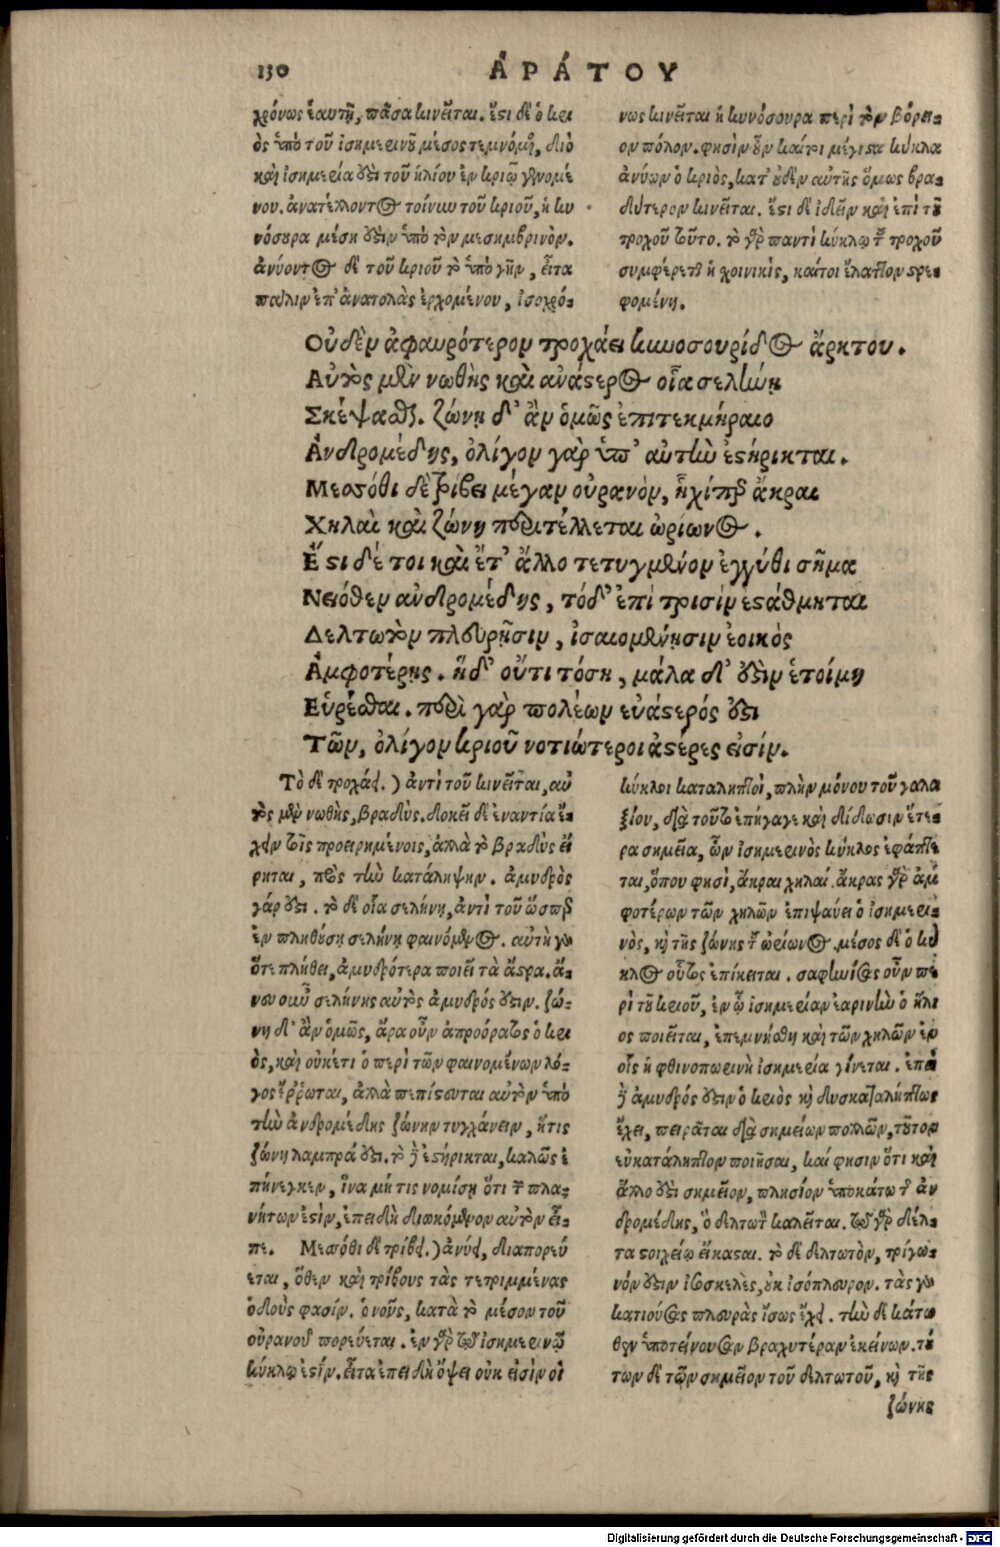 130
ἈΡΆΤΟΥ
χρόνως ἑαυτῇ, πᾶσα κινεῖται. ἔστι δὲ ὁ κρι
ὸς ὑπὸ τοῦ ἰσημερινοῦ μέσος τεμνόμενος, διὸ
καὶ ἰσημερία ἐστὶ τοῦ ἡλίου ἐν κριῷ γενομέ
νου. ἀνατέλλοντος τοίνυν τοῦ κριοῦ, ἡ κυ
νόσουρα μέση ἐστὶν ὑπὸ τὸν μεσημβρινόν.
ἀνύοντος δὲ τοῦ κριοῦ τὸ ὑπὸ γῆν, εἶτα
πάλιν ἐπ' ἀνατολὰς ἐρχομένου, ἰσοχρό-
νως κινεῖται ἡ κυνόσουρα περὶ τὸν βόρει-
ον πόλον. φησὶν οὖν καίτοι μέγιστα κύκλα
ἀνύων ὁ κριὸς, κατ' οὐδὲν αὐτῆς ὅμως βρα-
δύτερον κινεῖται. ἔστι δὲ ἰδεῖν καὶ ἐπὶ τοῦ
τροχοῦ τοῦτο. τὸ γὰρ παντὶ κύκλῳ τοῦ τροχοῦ
συμφέρεται ἡ χοινικὶς, καίτοι ἔλαττον στρε-
φομένη.
Οὐδὲν ἀφαυρότερον τροχάει κυνοσουρίδος ἄρκτου.
Αὐτὸς μὲν νωθὴς καὶ ἀνάστερος οἷα σελήνῃ
Σκέψασθαι. ζώνῃ δ' ἂν ὁμῶς ἐπιτεκμήραιο
Ἀνδρομέδης, ὀλίγον γὰρ ὑπ' αὐτὴν ἐστήρικται.
Μεσσόθι δὲ τρίβει μέγαν οὐρανὸν, ἧχί περ ἄκραι
Χηλαὶ καὶ ζώνη περιτέλλεται ὠρίωνος.
Ἔστι δέ τοι καὶ ἔτ' ἄλλο τετυγμένον ἐγγύθι σῆμα
Νειόθεν ἀνδρομέδης, τόδ' ἐπὶ τρισὶν ἐστάθμηται
Δελτωτὸν πλευρῇσιν, ἰσαιομένῃσιν ἐοικὸς
Ἀμφοτέρῃς. ἡ δ' οὔτι τόση, μάλα δ' ἐστὶν ἑτοίμη
Εὑρέσθαι. περὶ γὰρ πολέων εὐάστερός ἐστι
Τῶν, ὀλίγον κριοῦ νοτιώτεροι ἀστέρες εἰσίν.
Τὸ δὲ τροχάει.) ἀντὶ τοῦ κινεῖται, αὐ
τὸς μὲν νωθὴς, βραδύς. δοκεῖ δὲ ἐναντία ἔ
χειν τοῖς προειρημένοις, ἀλλὰ τὸ βραδὺς εἴ
ρηται, πρὸς τὴν κατάληψιν. ἀμυδρὸς
γάρ ἐστι. τὸ δὲ οἷα σελήνῃ, ἀντὶ τοῦ ὥσπερ
ἐν πληθούσῃ σελήνῃ φαινόμενος. αὐτὴ γὰρ
ὅτε πλήθει, ἀμυδρότερα ποιεῖ τὰ ἄστρα. ἄ-
νευ οὖν σελήνης αὐτὸς ἀμυδρός ἐστιν. ζώ-
νῃ δ' ἂν ὁμῶς, ἄρα οὖν ἀπρόορατος ὁ κρι
ὸς, καὶ οὐκέτι ὁ περὶ τῶν φαινομένων λό-
γος ἔρρωται, ἀλλὰ πεπίστευται αὐτὸν ὑπὸ
τὴν ἀνδρομέδης ζώνην τυγχάνειν, ἥτις
ζώνη λαμπρά ἐστι. τὸ δὲ ἐστήρικται, καλῶς ἐ
πήνεγκεν, ἵνα μή τις νομίσῃ ὅτι τῶν πλα-
νήτων ἐστὶν, ἐπειδὴ διωκόμενον αὐτὸν εἶ-
πε. Μεσσόθι δὲ τρίβει.) ἀνύει, διαπορεύ
εται, ὅθεν καὶ τρίβους τὰς τετριμμένας
ὁδούς φασίν. ὁ νοῦς, κατὰ τὸ μέσον τοῦ
οὐρανοῦ πορεύεται. ἐν γὰρ τῷ ἰσημερινῷ
κύκλῳ ἐστίν. εἶτα ἐπειδὴ ὄψει οὐκ εἰσὶν οἱ
κύκλοι καταληπτοὶ, πλὴν μόνου τοῦ γαλα
ξίου, διὰ τοῦτο ἐπήγαγε καὶ δίδωσιν ἕτε-
ρα σημεῖα, ὧν ἰσημερινὸς κύκλος ἐφάπτε
ται, ὅπου φησὶ, ἄκραι χηλαί. ἄκρας γὰρ ἀμ
φοτέρων τῶν χηλῶν ἐπιψαύει ὁ ἰσημερι-
νὸς, καὶ τῆς ζώνης τοῦ ὠρίωνος. μέσος δὲ ὁ κύ
κλος οὗτος ἐπίκειται. σαφηνίσας οὖν πε
ρὶ τοῦ κριοῦ, ἐν ᾧ ἰσημερίαν ἐαρινὴν ὁ ἥλι
ος ποιεῖται, ἐπεμνήσθη καὶ τῶν χηλῶν ἐν
οἷς ἡ φθινοπωρινὴ ἰσημερία γίνεται. ἐπεὶ
δὲ ἀμυδρός ἐστιν ὁ κριὸς καὶ δυσκαταλήπτως
ἔχει, πειρᾶται διὰ σημείων πολλῶν, τοῦτον
εὐκατάληπτον ποιῆσαι, καί φησιν ὅτι καὶ
ἄλλο ἐστὶ σημεῖον, πλησίον ὑποκάτω τῆς ἀν
δρομέδης, ὃ δελτωτὸν καλεῖται. τῷ γὰρ δέλ-
τα στοιχείῳ εἴκασται. τὸ δὲ δελτωτὸν, τρίγω-
νόν ἐστιν ἰσοσκελὲς, οὐκ ἰσόπλευρον. τὰς γὰρ
κατιούσας πλευρὰς ἴσως ἔχει. τὴν δὲ κάτω
θεν ὑποτείνουσαν βραχυτέραν ἐκείνων. τού
των δὲ τῶν σημεῖον τοῦ δελτωτοῦ, καὶ τῆς
ζώνης
Digitalisierung gefördert durch die Deutsche Forschungsgemeinschaft - DFG